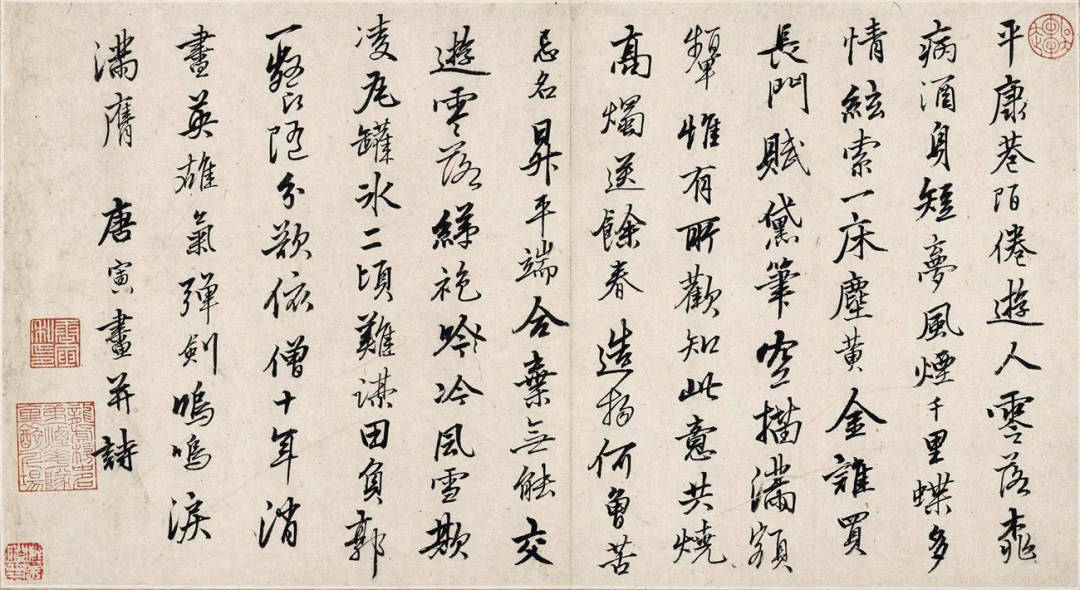 平康巷陌倦遊人零落桃
病酒身短夢風煙千里蝶多
情絃索一床塵黃金誰買
長門賦黛筆空描滿額
顰惟有所歡知此意共燒
高燭送餘春造物何曾苦
忌名昇平端合棄無能交
遊零落綈袍吟冷風雪欺
凌瓦罐冰二頃難謀田負郭
一餐隨分欲依僧十年消
畫英雄氣彈劍嗚嗚淚
滿膺 唐寅畫并詩